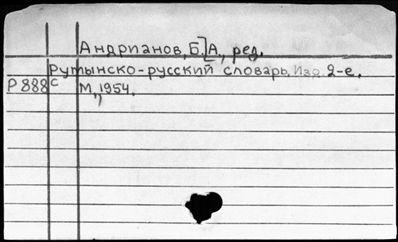 Андрианов, Б. А., ред.
Румынско-русский словарь. Изд. 2-е.
Р 888с М., 1954.